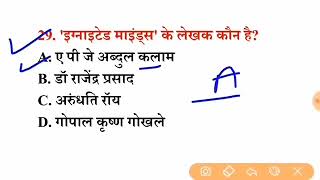 29. 'इग्नाइटेड माइंड्स' के लेखक कौन है?
A. ए पी जे अब्दुल कलाम
B. डॉ राजेंद्र प्रसाद
C. अरुंधति रॉय
D. गोपाल कृष्ण गोखले
A